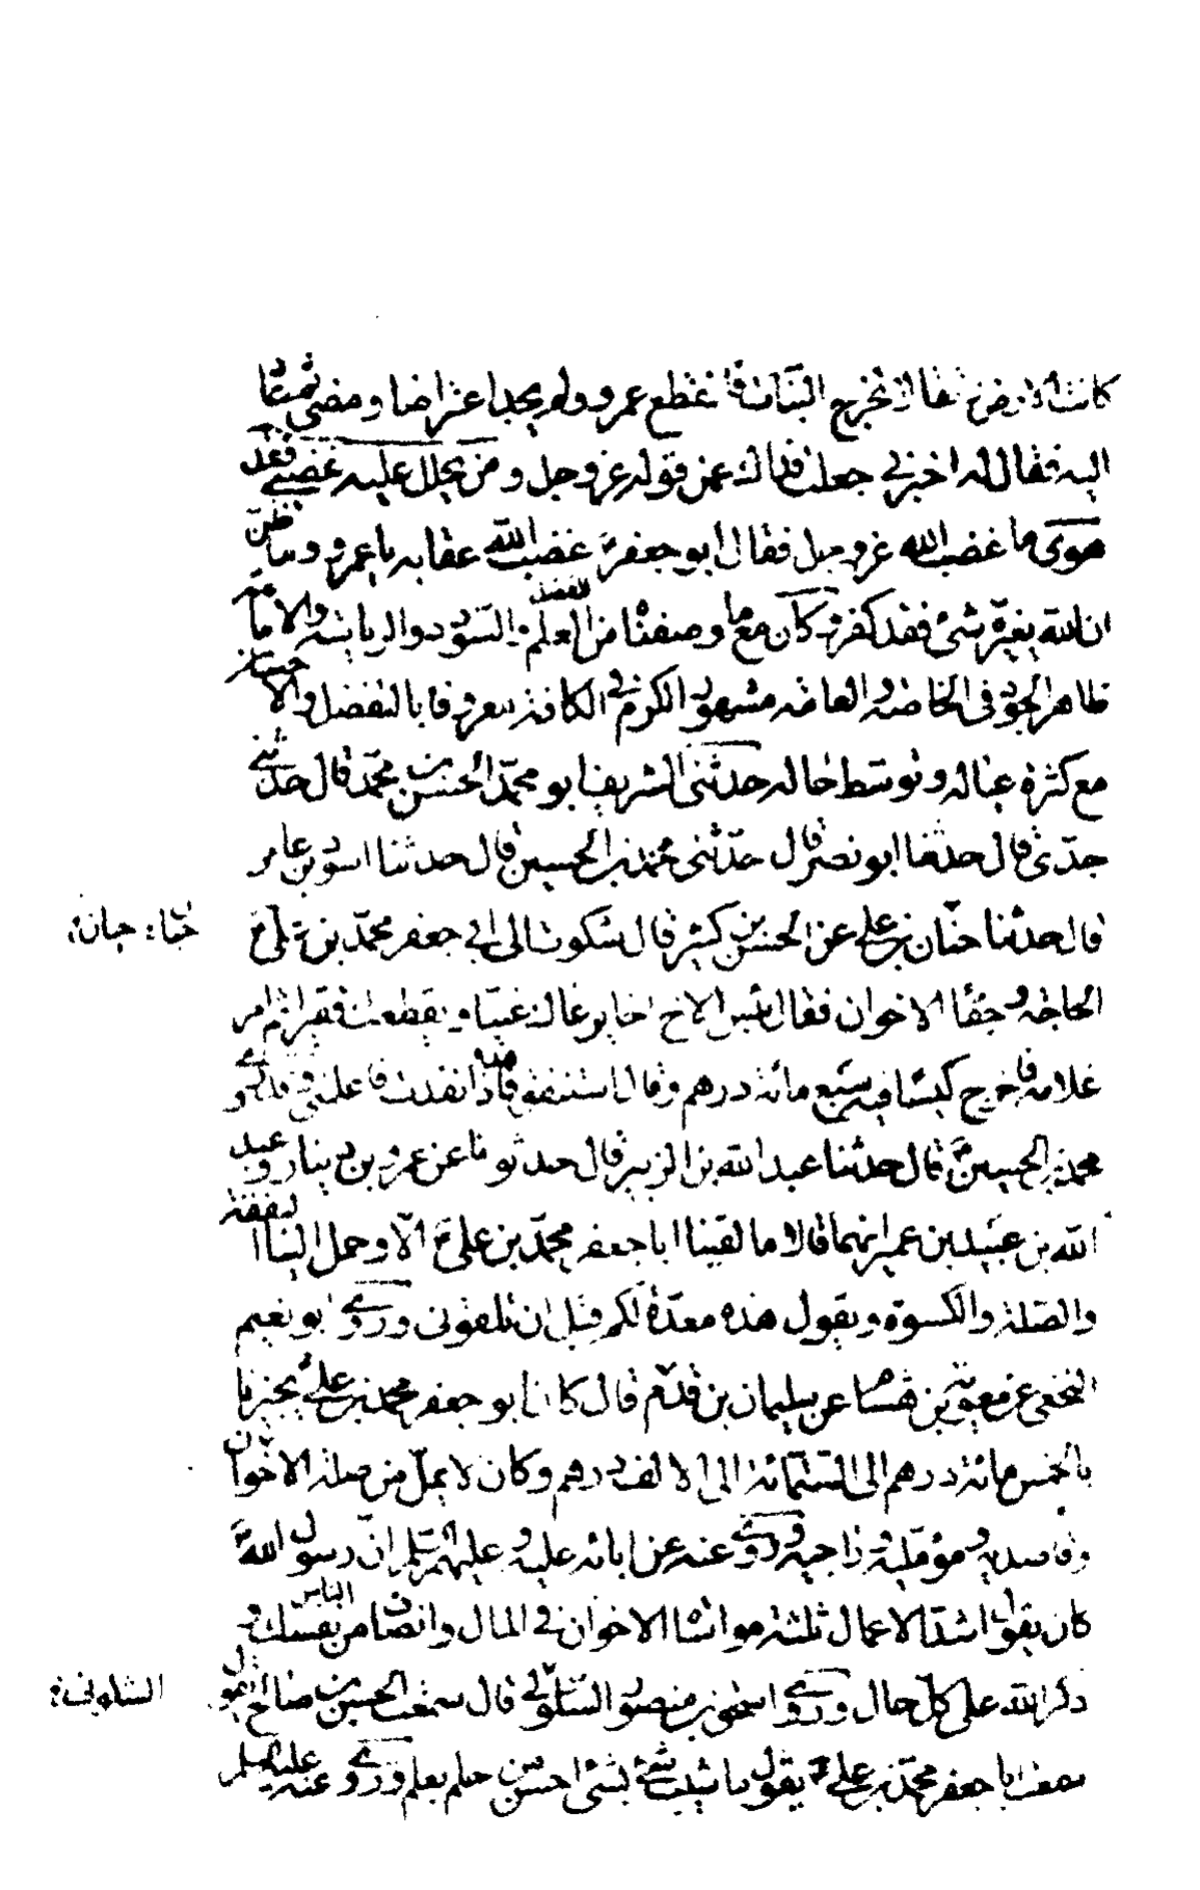 كانت الارض رتقا لا تخرج النبات فانقطع عمرو ولم يجد اعتراضا ومضى ثم عاد
اليه فقال له اخبرني جعلت فداك عن قوله عز وجل ومن يحلل عليه غضبي فقد
هوى ما غضب الله عز وجل فقال ابو جعفر ع غضب الله عقابه يا عمرو ومن ظن
ان الله يغيره شئ فقد كفر وكان مع ما وصفناه من الفضل العلم والسودد والرياسة والامامة
ظاهر الجود في الخاصة والعامة مشهور الكرم في الكافة معروفا بالتفضل والاحسان
مع كثرة عياله وتوسط حاله حدثنى الشريف ابو محمد الحسن بن محمد قال حدثني
جدى قال حدثنا ابو نصر قال حدثنى محمد بن الحسين قال حدثنا اسود بن عامر
قال حدثنا حنان بن على عن الحسن بن كثير قال شكوت الى ابي جعفر محمد بن على ع
الحاجة وجفا الاخوان فقال بئس الاخ اخا يرعاك غنيا ويقطعك فقيرا ثم امر
غلامه فاخرج كيسا فيه سبع مائة درهم وقال استنفق هذه فاذا نفدت فاعلمنى وقد روى
محمد بن الحسين قال حدثنا عبد الله بن الزبير قال حدثونا عن عمرو بن دينار وعبد
الله بن عبيد بن عمير انهما قالا ما لقينا ابا جعفر محمد بن على ع الا وحمل الينا النفقة
والصلة والكسوة ويقول هذه معدة لكم قبل ان تلقونى وروى ابو نعيم
النخعى عن معوية بن هشام عن سليمان بن قدم قال كان ابو جعفر محمد بن على ع يجيزنا
بالخمس مائة درهم الى الستمائة الى الالف درهم وكان لا يمل من صلة الاخوان
وقاصديه ومؤمليه وراجيه وروى عنه عن ابائه عليه وعليهم السلم ان رسول الله ص
كان يقول اشد الاعمال ثلثة مواساة الاخوان في المال وانصاف الناس من نفسك و
ذكر الله على كل حال وروى اسحق بن منصور السلولي قال سمعت الحسن بن صالح يقول
سمعت ابا جعفر محمد بن على ع يقول ما شيب شئ بشئ احسن من حلم بعلم وروى عنه عليه السلم